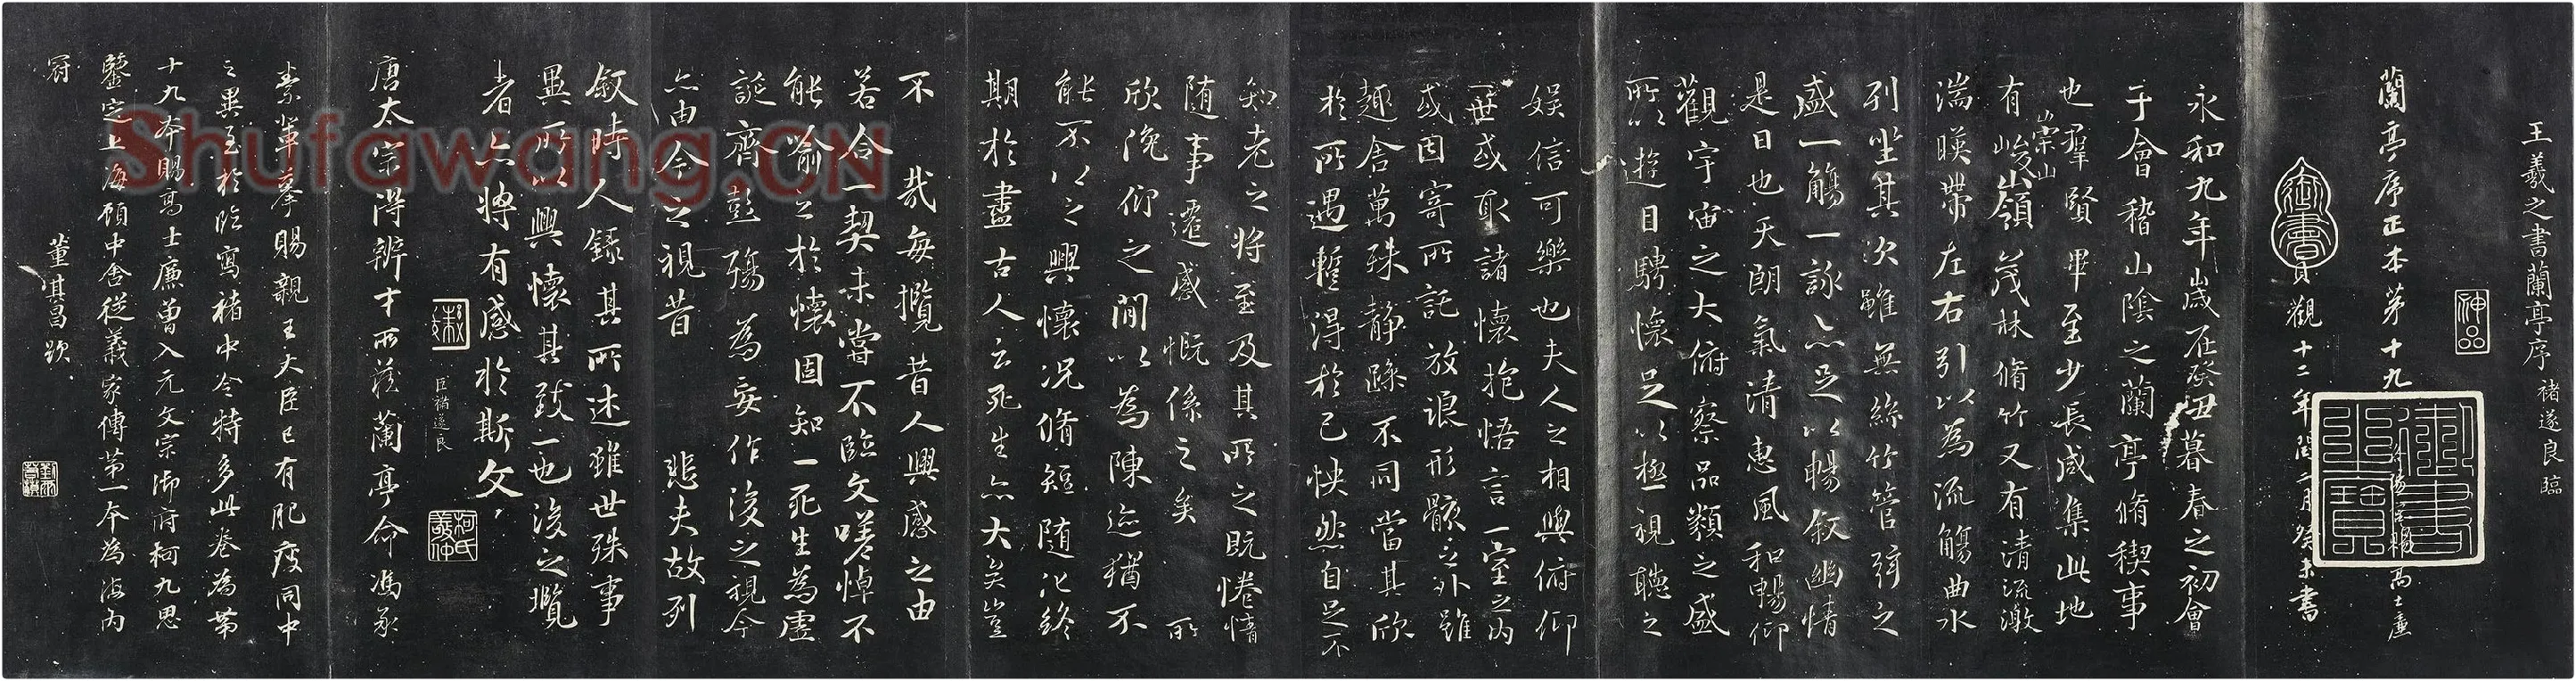 王羲之書蘭亭序 褚遂良臨
神品
蘭亭序正本第十九 賜高士廉
御書
貞觀十二年閏二月癸未書
永和九年歲在癸丑暮春之初會
于會稽山陰之蘭亭脩稧事
也羣賢畢至少長咸集此地
有崇山峻嶺茂林脩竹又有清流激
湍暎帶左右引以為流觴曲水
列坐其次雖無絲竹管弦之
盛一觴一詠亦足以暢敘幽情
是日也天朗氣清惠風和暢仰
觀宇宙之大俯察品類之盛
所以遊目騁懷足以極視聽之
娛信可樂也夫人之相與俯仰
一世或取諸懷抱悟言一室之內
或因寄所託放浪形骸之外雖
趣舍萬殊靜躁不同當其欣
於所遇暫得於己怏然自足不
知老之將至及其所之既惓情
隨事遷感慨係之矣 所
欣俛仰之間以為陳迹猶不
能不以之興懷況脩短隨化終
期於盡古人云死生亦大矣豈
不 哉每攬昔人興感之由
若合一契未嘗不臨文嗟悼不
能喻之於懷固知一死生為虛
誕齊彭殤為妄作後之視今
亦由今之視昔 悲夫故列
敘時人錄其所述雖世殊事
異所以興懷其致一也後之攬
者亦將有感於斯文
臣褚遂良
柯氏敬仲
唐太宗得辨才所藏蘭亭命馮承
素輩摹賜親王大臣已有肥瘦同中
之異至於臨寫褚中令特多此卷為第
十九本賜高士廉曾入元文宗御府柯九思
鑒定上海顧中舍從義家傳第一本為海內
冠 董其昌跋
Shufawang.CN